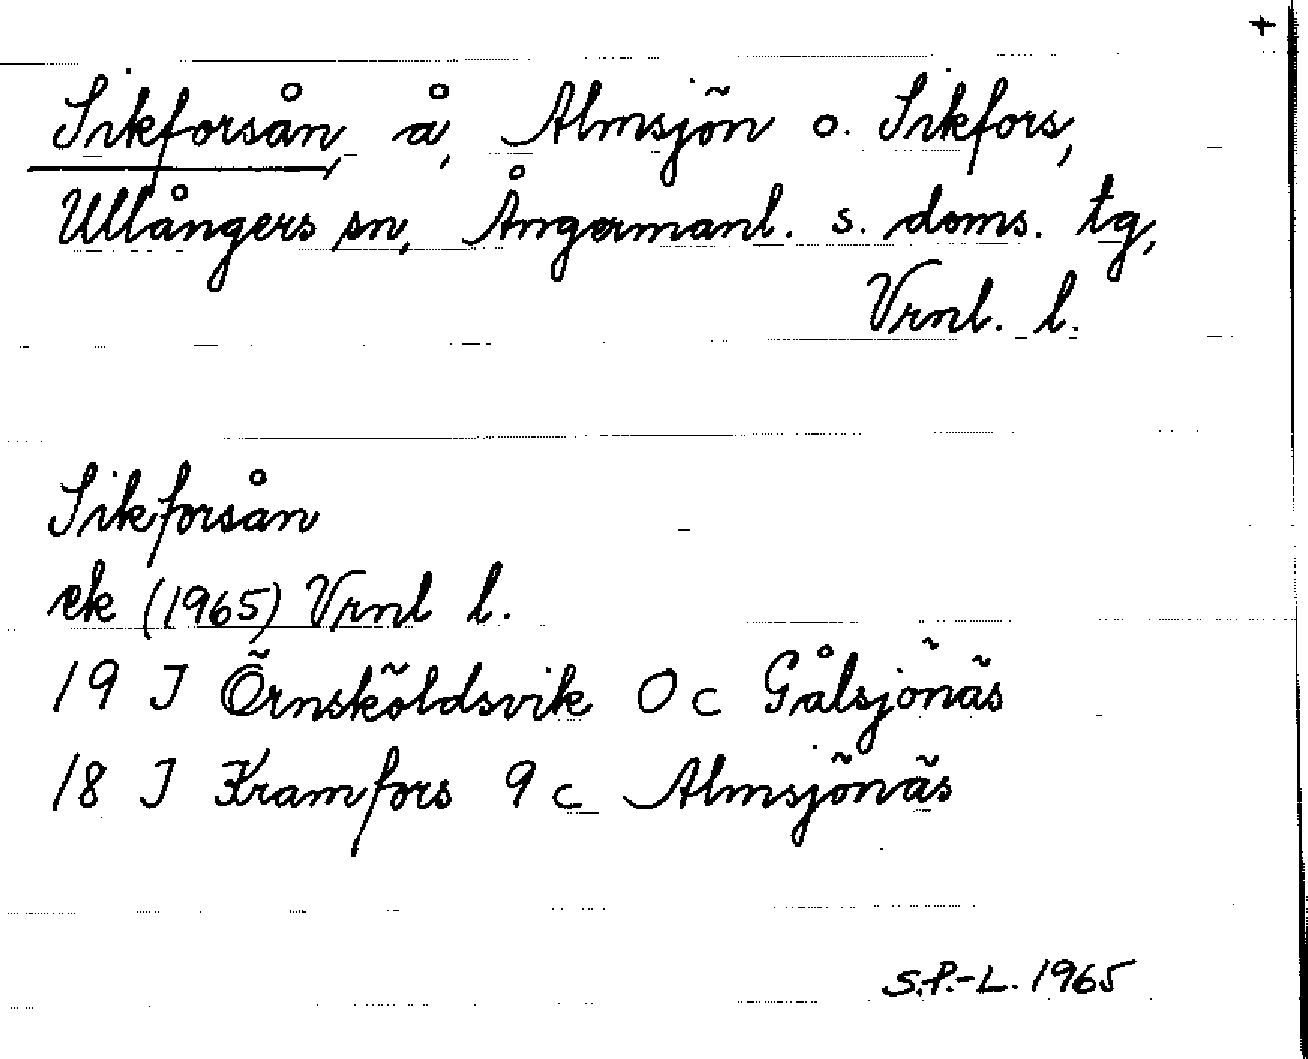 +
Sikforsån, å, Almsjön o. Sikfors,
Ullångers sn, Ångermanl. s. doms. tg,
Vrnl. l.
Sikforsån
ek (1965) Vrnl l.
19 J Örnsköldsvik 0 c Gålsjönäs
18 J Kramfors 9 c Almsjönäs
S.P.-L. 1965